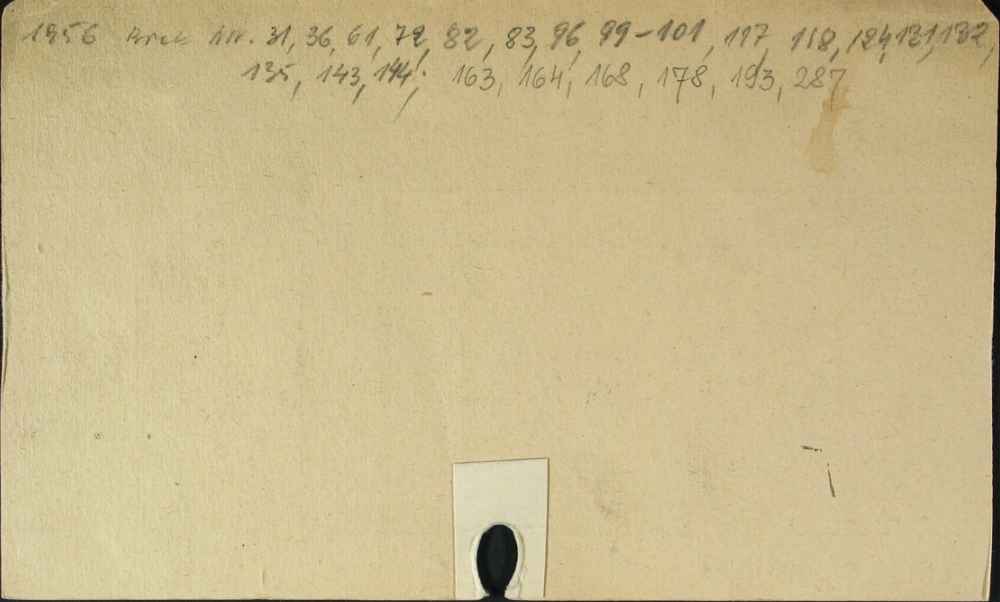 1956 Nr. 31, 36, 61, 72, 82, 83, 96, 99-101, 117, 118, 124, 131, 132,
135, 143, 144, 163, 164, 168, 178, 193, 287